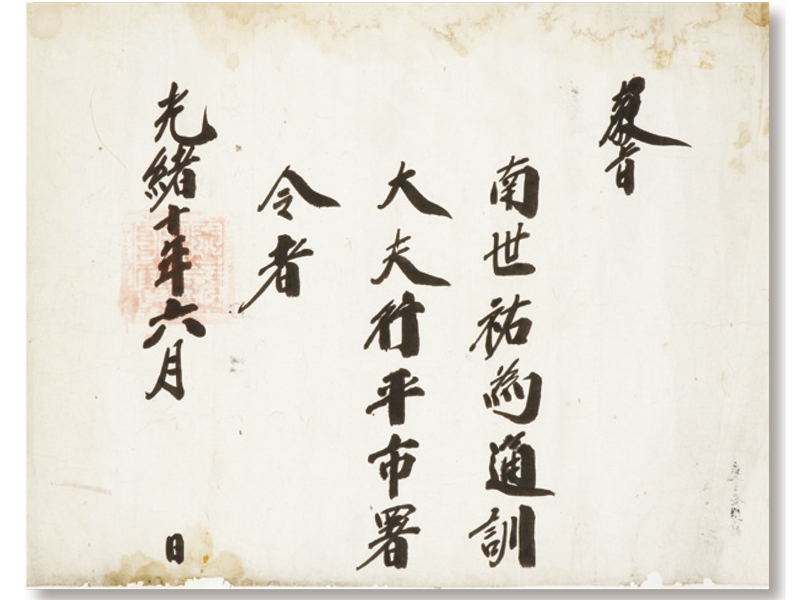 敎旨
南世祐爲通訓
大夫行平市署
令者
光緖十年六月
日